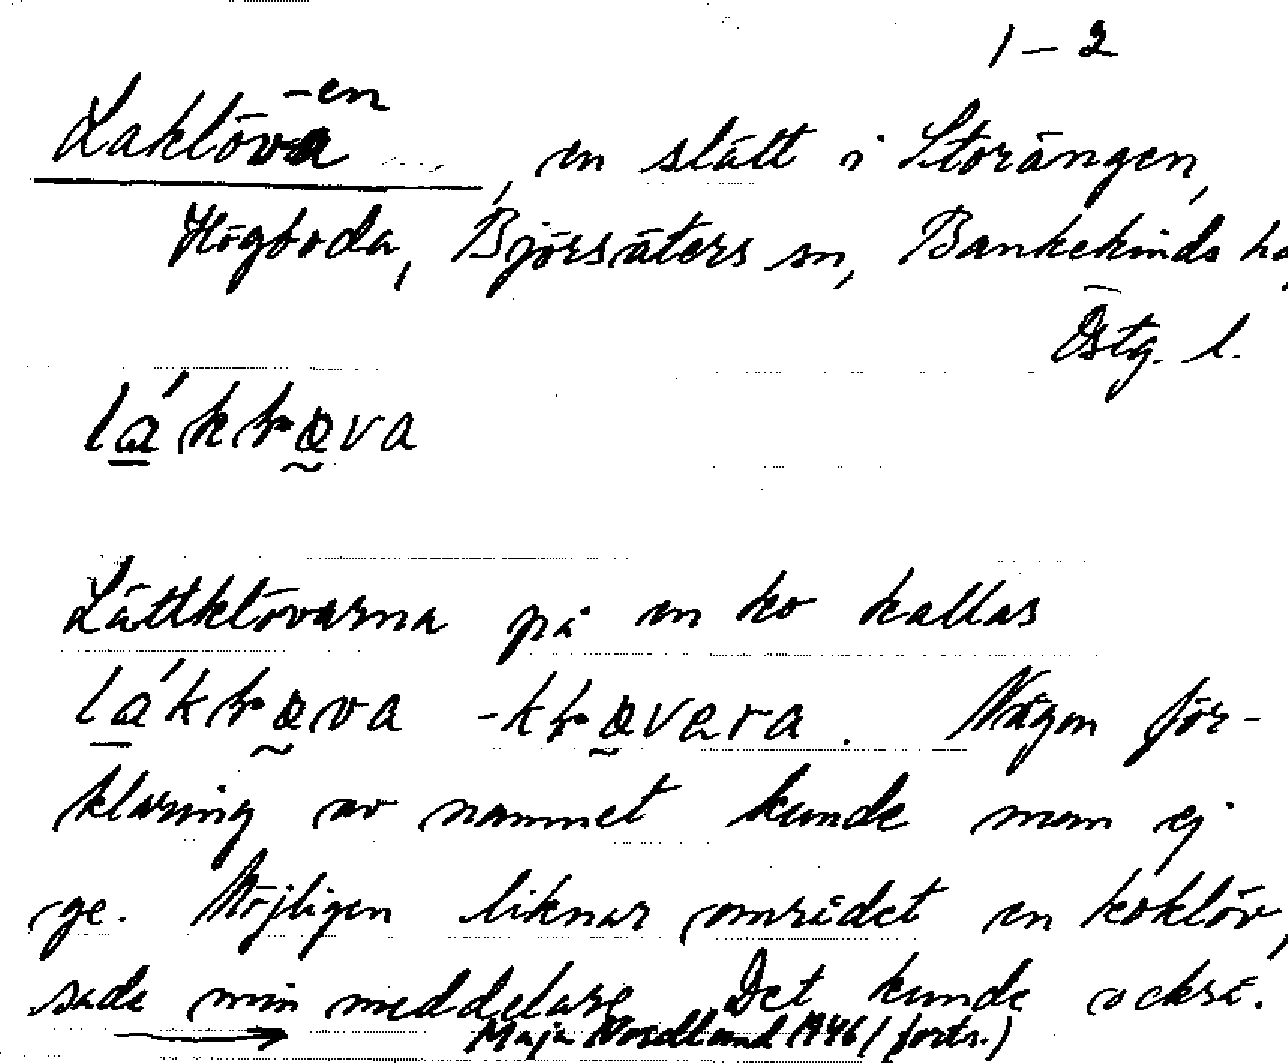 1–2
-en
Laklöva , en slått i Storängen,
Högboda, Björsäters sn, Bankekinds hd,
Östg. l.
Lättklövarna på en ko kallas
Någon för-
klaring av namnet kunde man ej
ge. Möjligen liknar området en koklöv,
sade min meddelare. Det kunde också.
Maja Nordlund 1946 (forts.)